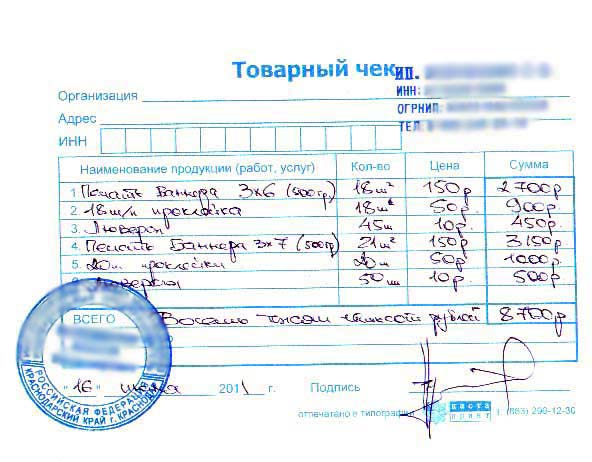 Товарный чек
ИП.
Организация
ИНН:
ОГРНИП:
Адрес
ТЕЛ.
ИНН
Наименование продукции (работ, услуг) Кол-во Цена Сумма
1. Печать Баннера 3х6 (500гр) 18м² 150р 2700р
2. 18м/п проклейка 18м 50р. 900р
3. Люверсы 45ш 10р. 450р.
4. Печать Баннера 3х7 (500гр) 21м² 150р 3150р
5. 20м проклейки 20м 50р 1000р.
Люверсы 50шт 10р 500р
ВСЕГО Восемь тысяч рублей 8700р
"16" 2011 г. Подпись
РОССИЙСКАЯ ФЕДЕРАЦИЯ
КРАСНОДАРСКИЙ КРАЙ г. КРАСНОДАР
отпечатано в типографии